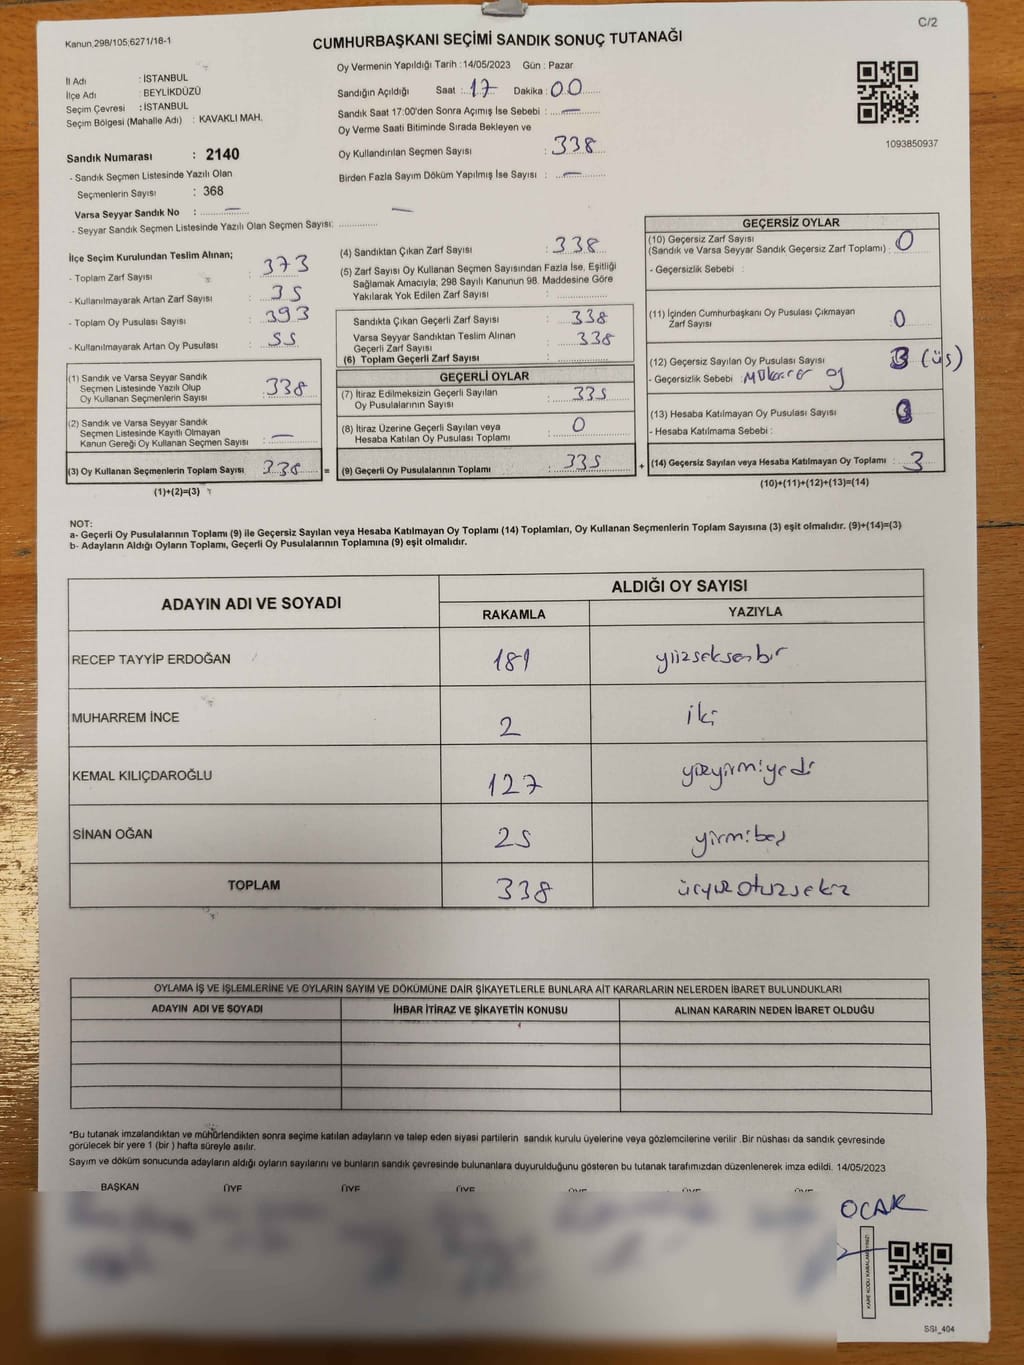 C/2
Kanun,298/105;6271/18-1
CUMHURBAŞKANI SEÇİMİ SANDIK SONUÇ TUTANAĞI
İl Adı : İSTANBUL
İlçe Adı : BEYLİKDÜZÜ
Seçim Çevresi : İSTANBUL
Seçim Bölgesi (Mahalle Adı) : KAVAKLI MAH.
Sandık Numarası : 2140
- Sandık Seçmen Listesinde Yazılı Olan
Seçmenlerin Sayısı : 368
Varsa Seyyar Sandık No : —
- Seyyar Sandık Seçmen Listesinde Yazılı Olan Seçmen Sayısı: —
Oy Vermenin Yapıldığı Tarih :14/05/2023 Gün : Pazar
Sandığın Açıldığı Saat : 17 Dakika : 00
Sandık Saat 17:00'den Sonra Açımış İse Sebebi : —
Oy Verme Saati Bitiminde Sırada Bekleyen ve
Oy Kullandırılan Seçmen Sayısı : 338
Birden Fazla Sayım Döküm Yapılmış İse Sayısı : —
1093850937
İlçe Seçim Kurulundan Teslim Alınan;
- Toplam Zarf Sayısı : 373
- Kullanılmayarak Artan Zarf Sayısı : 35
- Toplam Oy Pusulası Sayısı : 393
- Kullanılmayarak Artan Oy Pusulası : 55
(1) Sandık ve Varsa Seyyar Sandık
Seçmen Listesinde Yazılı Olup
Oy Kullanan Seçmenlerin Sayısı : 338
(2) Sandık ve Varsa Seyyar Sandık
Seçmen Listesinde Kayıtlı Olmayan
Kanun Gereği Oy Kullanan Seçmen Sayısı : —
(3) Oy Kullanan Seçmenlerin Toplam Sayısı : 338 =
(1)+(2)=(3)
(4) Sandıktan Çıkan Zarf Sayısı : 338
(5) Zarf Sayısı Oy Kullanan Seçmen Sayısından Fazla İse, Eşitliği
Sağlamak Amacıyla; 298 Sayılı Kanunun 98. Maddesine Göre
Yakılarak Yok Edilen Zarf Sayısı :
Sandıkta Çıkan Geçerli Zarf Sayısı : 338
Varsa Seyyar Sandıktan Teslim Alınan : 338
Geçerli Zarf Sayısı
(6) Toplam Geçerli Zarf Sayısı :
GEÇERLİ OYLAR
(7) İtiraz Edilmeksizin Geçerli Sayılan : 335
Oy Pusulalarının Sayısı
(8) İtiraz Üzerine Geçerli Sayılan veya : 0
Hesaba Katılan Oy Pusulası Toplamı
(9) Geçerli Oy Pusulalarının Toplamı : 335 +
GEÇERSİZ OYLAR
(10) Geçersiz Zarf Sayısı
(Sandık ve Varsa Seyyar Sandık Geçersiz Zarf Toplamı) : 0
- Geçersizlik Sebebi :
(11) İçinden Cumhurbaşkanı Oy Pusulası Çıkmayan
Zarf Sayısı : 0
(12) Geçersiz Sayılan Oy Pusulası Sayısı : 3 (üç)
- Geçersizlik Sebebi : Mükerrer oy
(13) Hesaba Katılmayan Oy Pusulası Sayısı :
- Hesaba Katılmama Sebebi :
(14) Geçersiz Sayılan veya Hesaba Katılmayan Oy Toplamı : 3
(10)+(11)+(12)+(13)=(14)
NOT:
a- Geçerli Oy Pusulalarının Toplamı (9) ile Geçersiz Sayılan veya Hesaba Katılmayan Oy Toplamı (14) Toplamları, Oy Kullanan Seçmenlerin Toplam Sayısına (3) eşit olmalıdır. (9)+(14)=(3)
b- Adayların Aldığı Oyların Toplamı, Geçerli Oy Pusulalarının Toplamına (9) eşit olmalıdır.
ADAYIN ADI VE SOYADI ALDIĞI OY SAYISI
RAKAMLA YAZIYLA
RECEP TAYYİP ERDOĞAN 181 yüzseksenbir
MUHARREM İNCE 2 iki
KEMAL KILIÇDAROĞLU 127 yüzyirmiyedi
SİNAN OĞAN 25 yirmibeş
TOPLAM 338 üçyüzotuzsekiz
OYLAMA İŞ VE İŞLEMLERİNE VE OYLARIN SAYIM VE DÖKÜMÜNE DAİR ŞİKAYETLERLE BUNLARA AİT KARARLARIN NELERDEN İBARET BULUNDUKLARI
ADAYIN ADI VE SOYADI İHBAR İTİRAZ VE ŞİKAYETİN KONUSU ALINAN KARARIN NEDEN İBARET OLDUĞU
*Bu tutanak imzalandıktan ve mühürlendikten sonra seçime katılan adayların ve talep eden siyasi partilerin sandık kurulu üyelerine veya gözlemcilerine verilir .Bir nüshası da sandık çevresinde
görülecek bir yere 1 (bir ) hafta süreyle asılır.
Sayım ve döküm sonucunda adayların aldığı oyların sayılarını ve bunların sandık çevresinde bulunanlara duyurulduğunu gösteren bu tutanak tarafımızdan düzenlenerek imza edildi. 14/05/2023
BAŞKAN ÜYE ÜYE ÜYE ÜYE ÜYE ÜYE
OCAK
KARE KODU KARALAMAYINIZ!
SSI_404